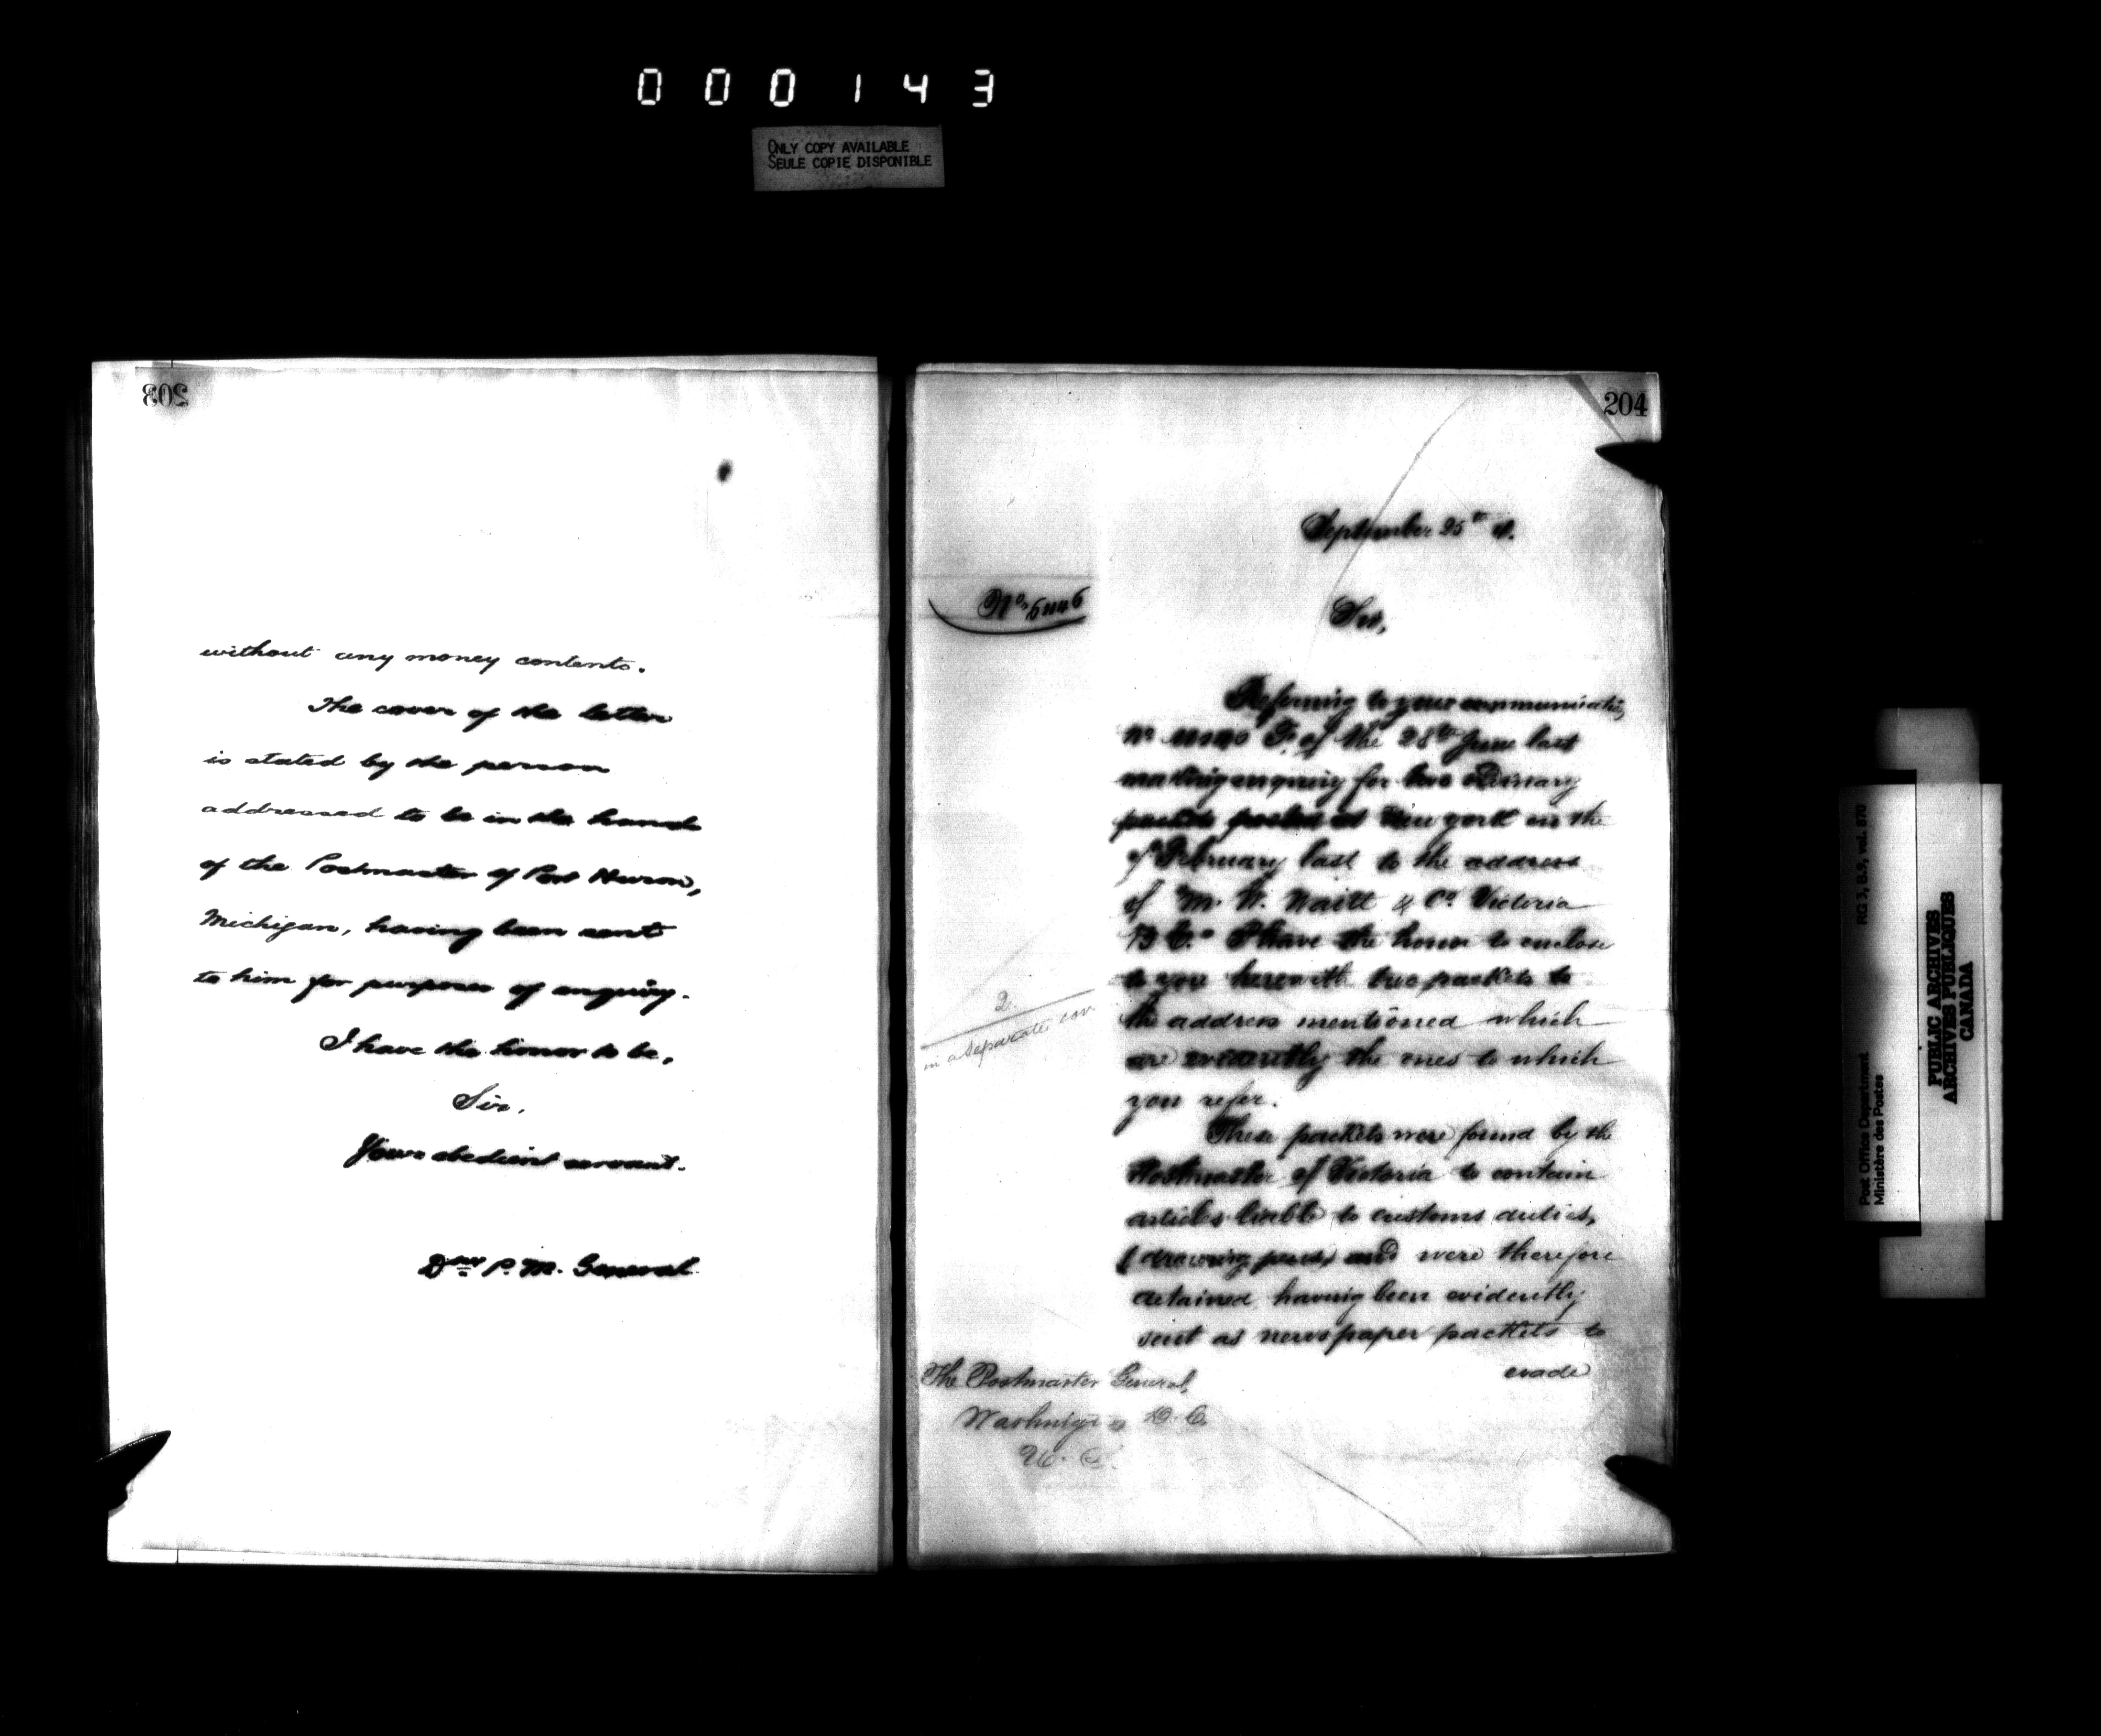 000143
ONLY COPY AVAILABLE
SEULE COPIE DISPONIBLE
203
without any money contents.
The cover of the letter
is stated by the person
addressed to be in the hands
of the Postmaster of Port Huron,
Michigan, having been sent
to him for purposes of enquiry.
I have the honor to be,
Sir,
Your obedient servant.
P. M. General
204
September 25th
No.
Sir,
Referring to your communication
No. F. of the 28th June last
making enquiry for two ordinary
packets posted at New York in the
of February last to the address
of M. W. Waitt & Co. Victoria
B C. I have the honor to enclose
to you herewith two packets to
the address mentioned which
are evidently the ones to which
you refer.
2
in a separate cov
These packets were found by the
Postmaster of Victoria to contain
articles liable to customs duties,
(drawing and were therefore
detained having been evidently
sent as newspaper packets to
evade
The Postmaster General,
Washington D. C.
U. S.
Post Office Department
Ministère des Postes
RG 3, B.9, vol. 870
PUBLIC ARCHIVES
ARCHIVES PUBLIQUES
CANADA